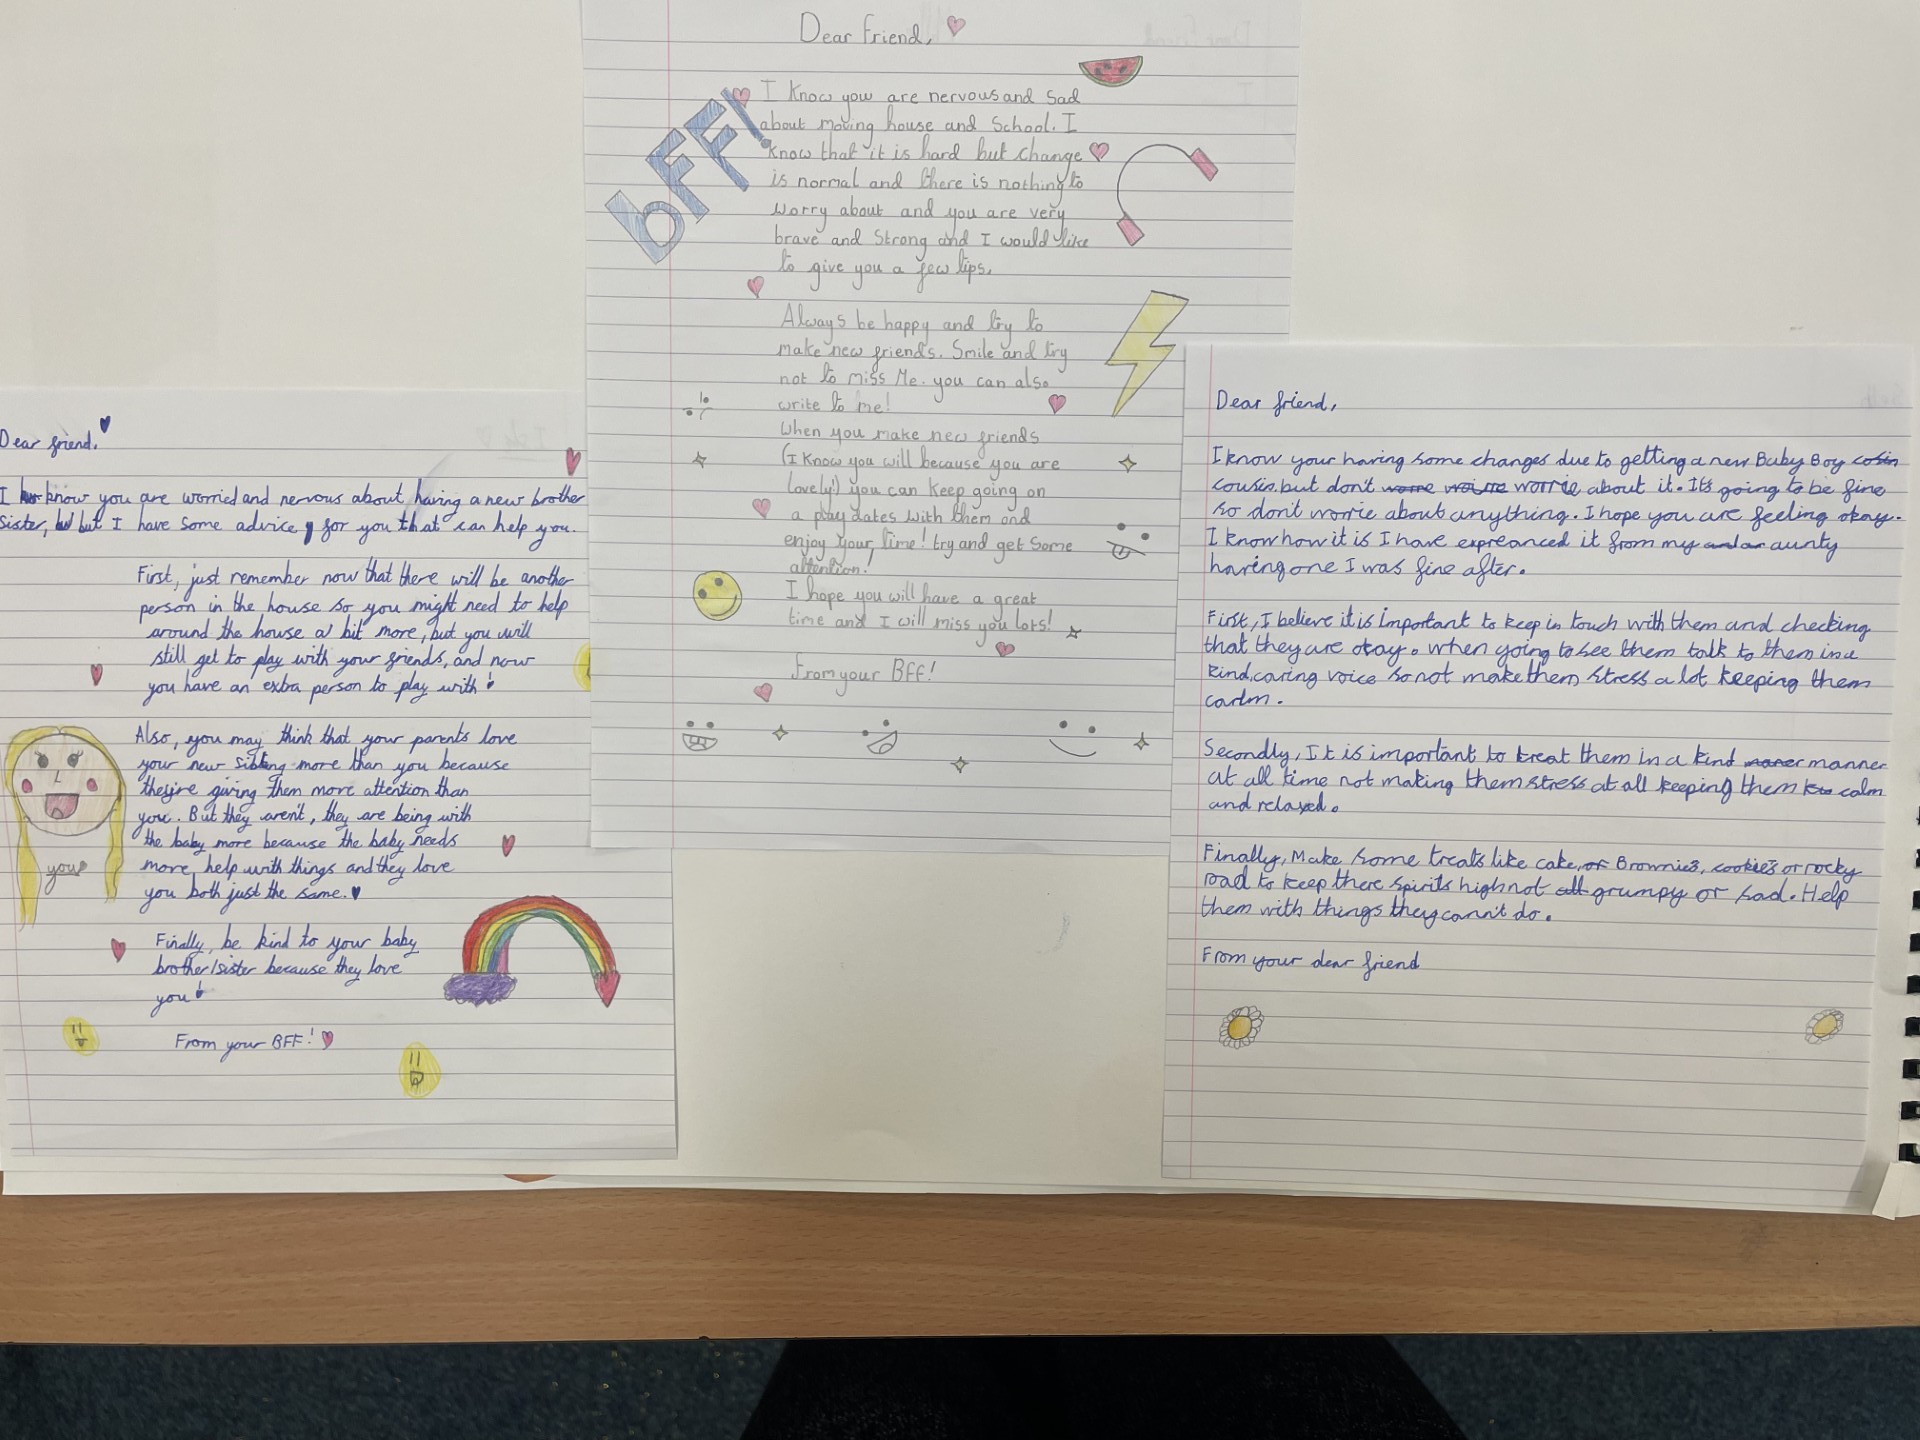 Dear friend,
I know you are worried and nervous about having a new brother
sister, but I have some advice, for you that can help you.
First, just remember now that there will be another
person in the house so you might need to help
around the house a bit more, but you will
still get to play with your friends, and now
you have an extra person to play with!
Also, you may think that your parents love
your new sibling more than you because
they're giving them more attention than
you. But they aren't, they are being with
the baby more because the baby needs
more help with things and they love
you both just the same.
you
Finally, be kind to your baby
brother/sister because they love
you!
From your BFF!
Dear Friend,
BFF!
I know you are nervous and sad
about moving house and School. I
know that it is hard but change
is normal and there is nothing to
worry about and you are very
brave and Strong and I would like
to give you a few tips.
Always be happy and try to
make new friends. Smile and try
not to miss Me. you can also
write to me!
When you make new friends
(I know you will because you are
lovely!) you can keep going on
a play dates with them and
enjoy your time! try and get some
attention!
I hope you will have a great
time and I will miss you lots!
From your BFF!
Dear friend,
I know your having some changes due to getting a new Baby Boy cosin
cousin but don't worrie about it. It's going to be fine
so don't worrie about anything. I hope you are feeling okay.
I know how it is I have expreanced it from my aunty
having one I was fine after.
First, I believe it is important to keep in touch with them and checking
that they are okay. When going to see them talk to them in a
kind, caring voice so not make them stress a lot keeping them
carlm.
Secondly, It is important to treat them in a kind manner
at all time not making them stress at all keeping them calm
and relaxed.
Finally, Make some treats like cake, or Brownies, cookies or rocky
road to keep there spirits high not all grumpy or sad. Help
them with things they cann't do.
From your dear friend